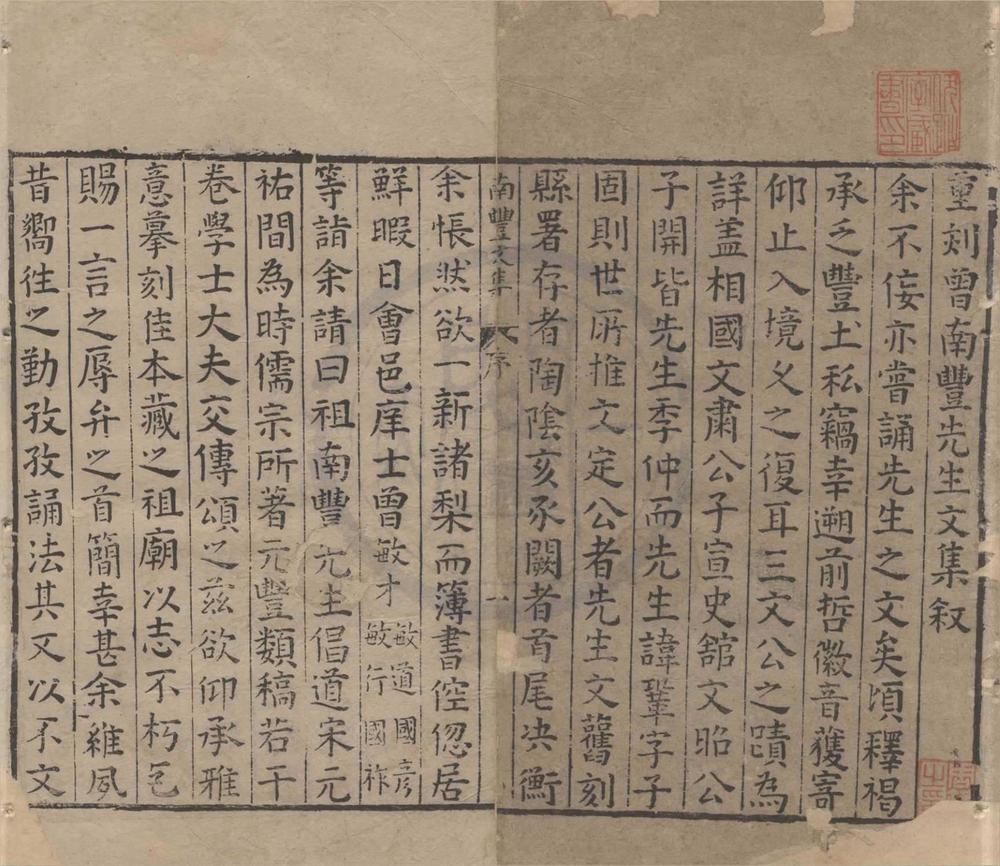 重刻曾南豐先生文集叙
余不佞亦嘗誦先生之文矣頃釋褐
承乏豐土私竊幸遡前哲徽音獲寄
仰止入境父之復耳三文公之蹟為
詳盖相國文肅公子宣史舘文昭公
子開皆先生季仲而先生諱鞏字子
固則世所推文定公者先生文舊刻
縣署存者陶陰亥豕闕者首尾决衡
南豐文集 序 一
余悵然欲一新諸梨而簿書倥偬居
鮮暇日會邑庠士曾敏才敏道國彦敏行國祚
等詣余請曰祖南豐先生倡道宋元
祐間為時儒宗所著元豐類稿若干
卷學士大夫交傳頌之兹欲仰承雅
意摹刻佳本藏之祖廟以志不朽乞
賜一言之辱弁之首簡幸甚余雖夙
昔嚮往之勤孜孜誦法其文以不文